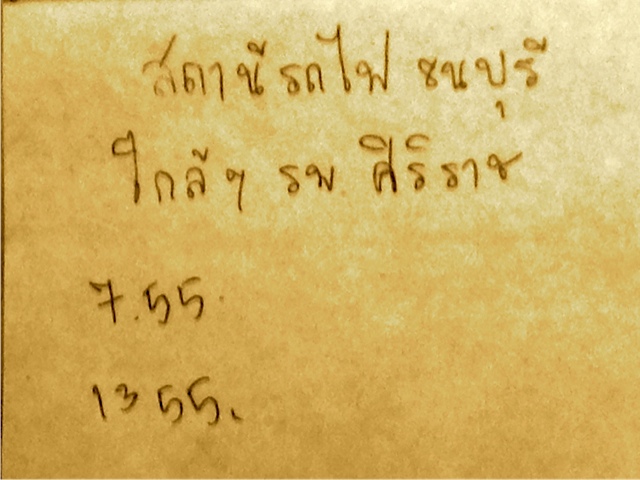 สถานีรถไฟ ธนบุรี
ใกล้ๆ รพ. ศิริราช
7.55
13 55.